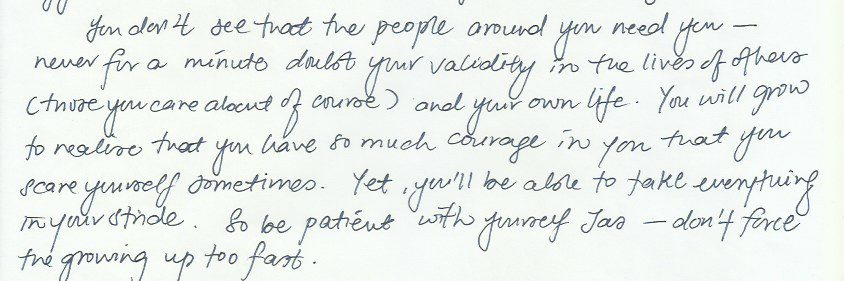 You don't see that the people around you need you —
never for a minute doubt your validity in the lives of others
(those you care about of course) and your own life. You will grow
to realise that you have so much courage in you that you
scare yourself sometimes. Yet, you'll be able to take everything
in your stride. So be patient with yourself Jas — don't force
the growing up too fast.